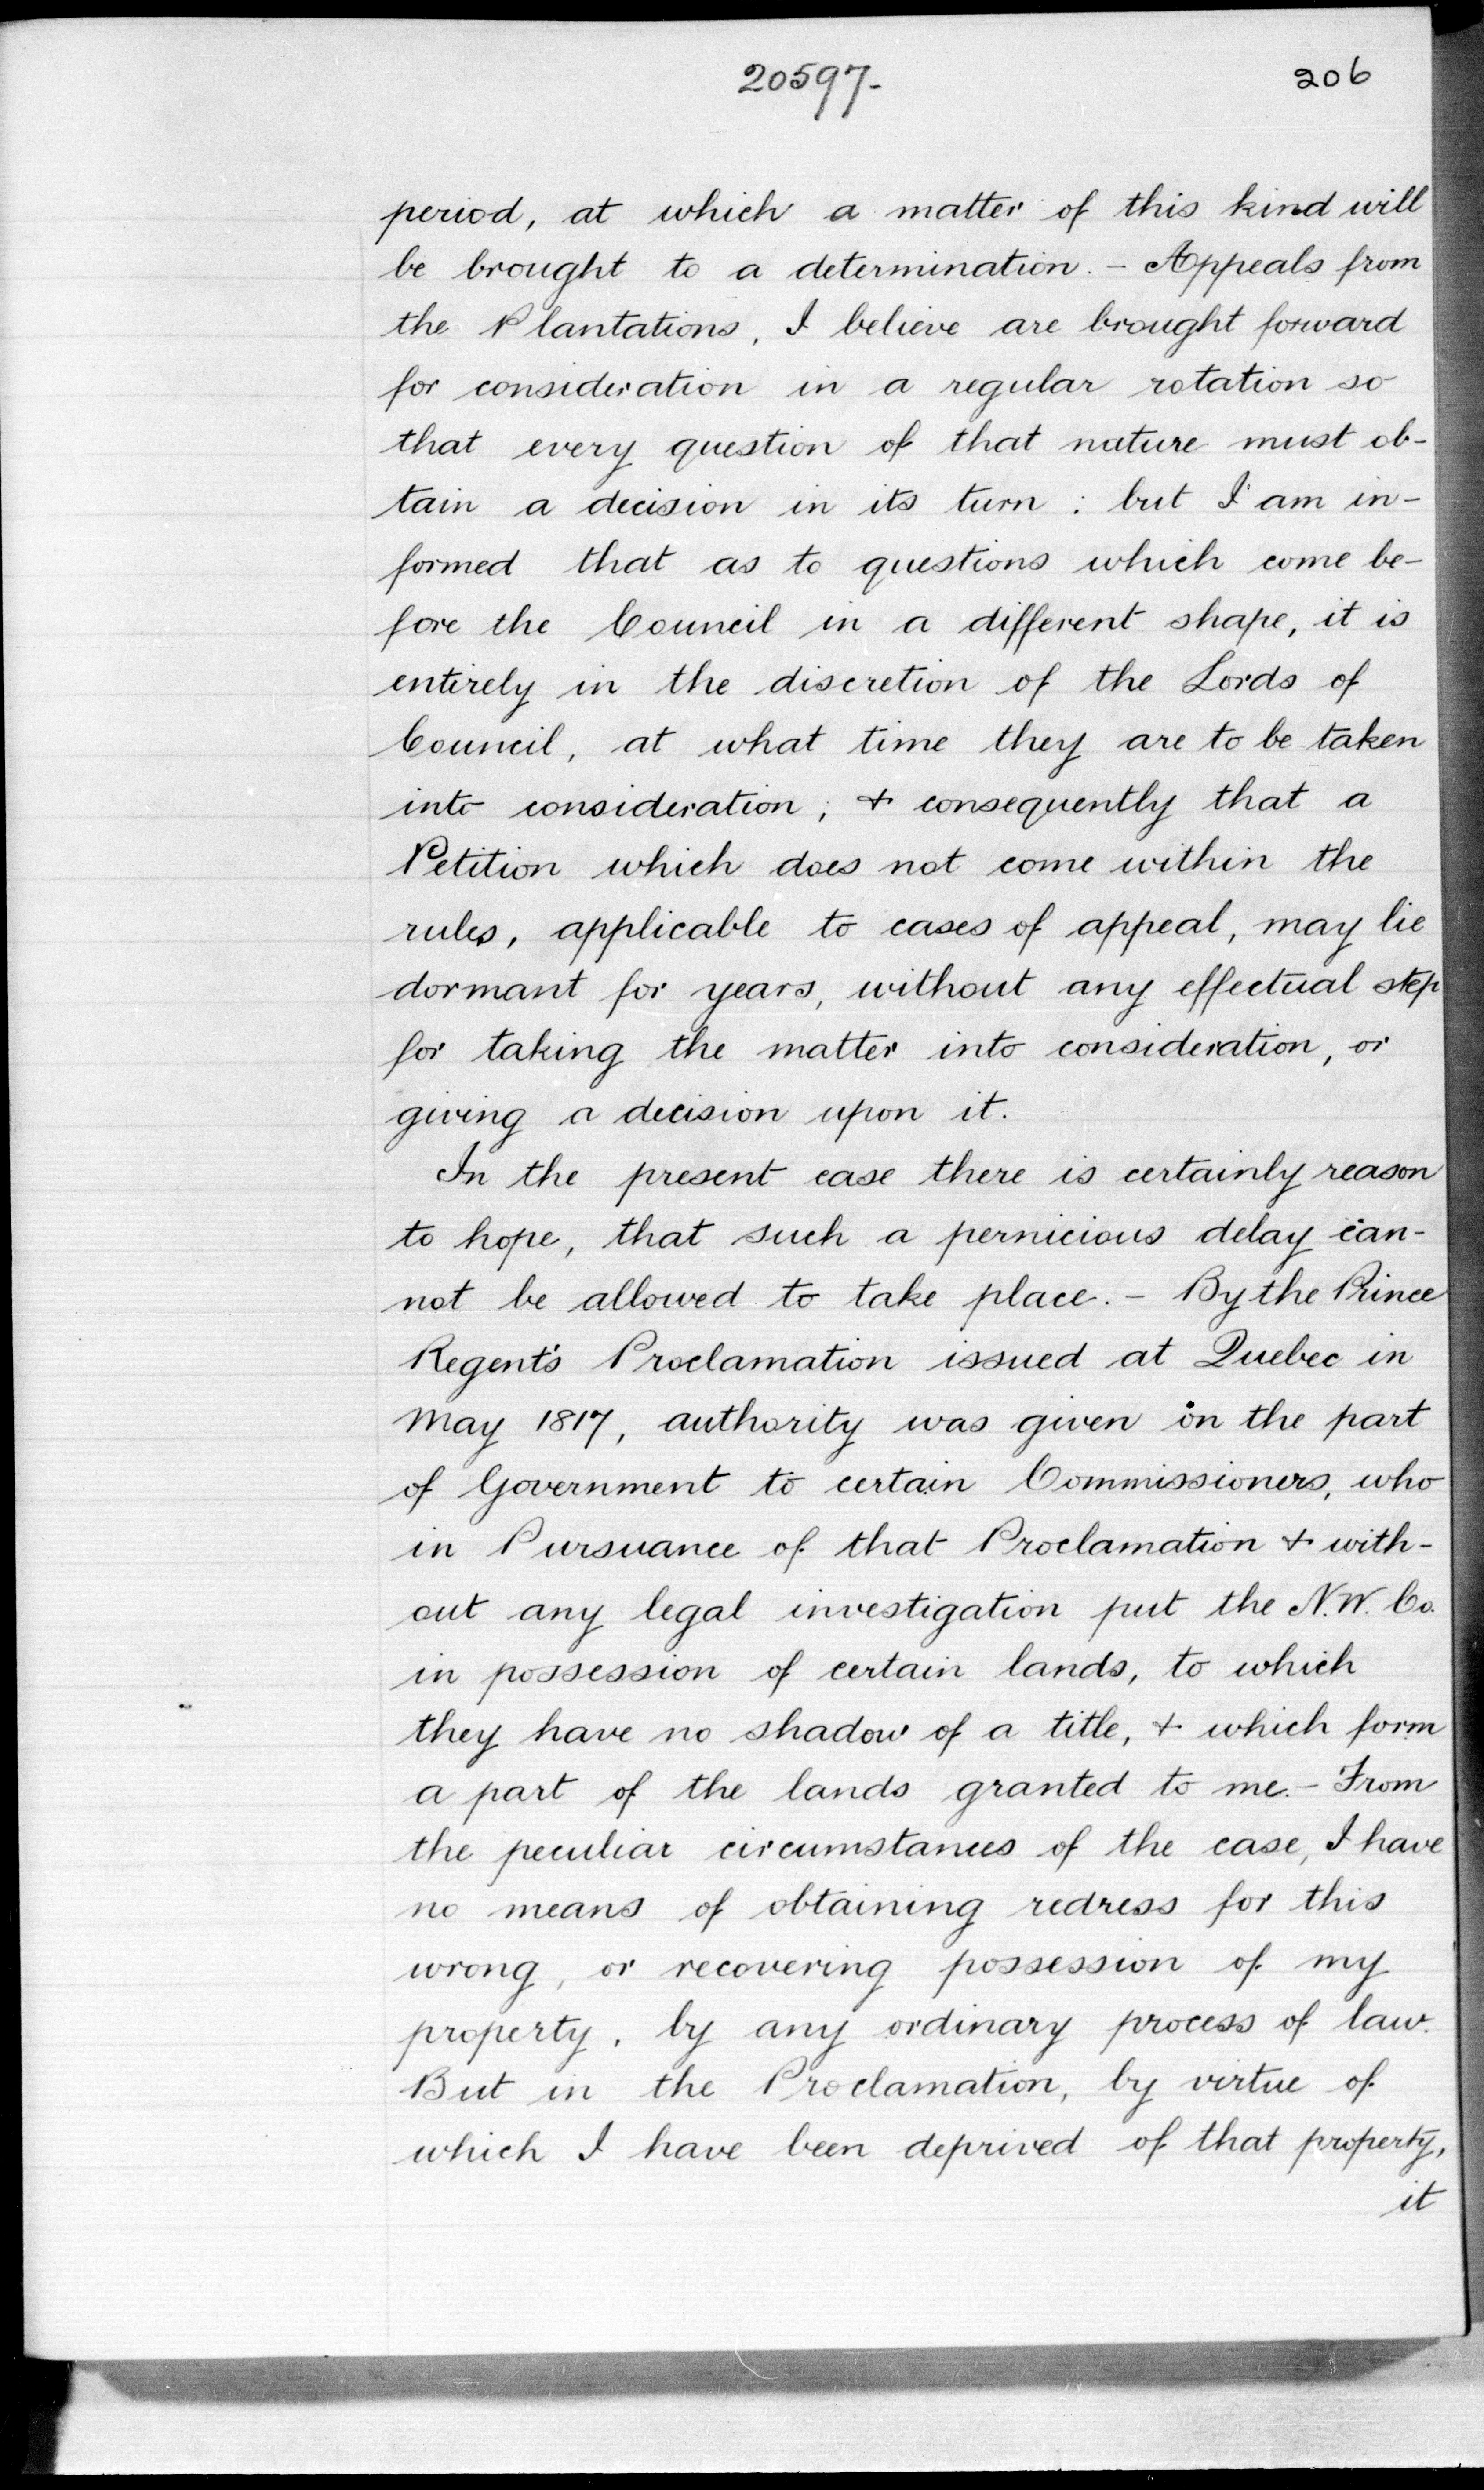 20597- 206
period, at which a matter of this kind will
be brought to a determination. - Appeals from
the Plantations, I believe are brought forward
for consideration in a regular rotation so
that every question of that nature must ob-
tain a decision in its turn : but I am in-
formed that as to questions which come be-
fore the Council in a different shape, it is
entirely in the discretion of the Lords of
Council, at what time they are to be taken
into consideration, & consequently that a
Petition which does not come within the
rules, applicable to cases of appeal, may lie
dormant for years, without any effectual step
for taking the matter into consideration, or
giving a decision upon it.
In the present case there is certainly reason
to hope, that such a pernicious delay can-
not be allowed to take place. - By the Prince
Regent's Proclamation issued at Quebec in
May 1817, authority was given on the part
of Government to certain Commissioners, who
in Pursuance of that Proclamation & with-
out any legal investigation put the N.W. Co.
in possession of certain lands, to which
they have no shadow of a title, & which form
a part of the lands granted to me. - From
the peculiar circumstances of the case, I have
no means of obtaining redress for this
wrong, or recovering possession of my
property, by any ordinary process of law.
But in the Proclamation, by virtue of
which I have been deprived of that property,
it